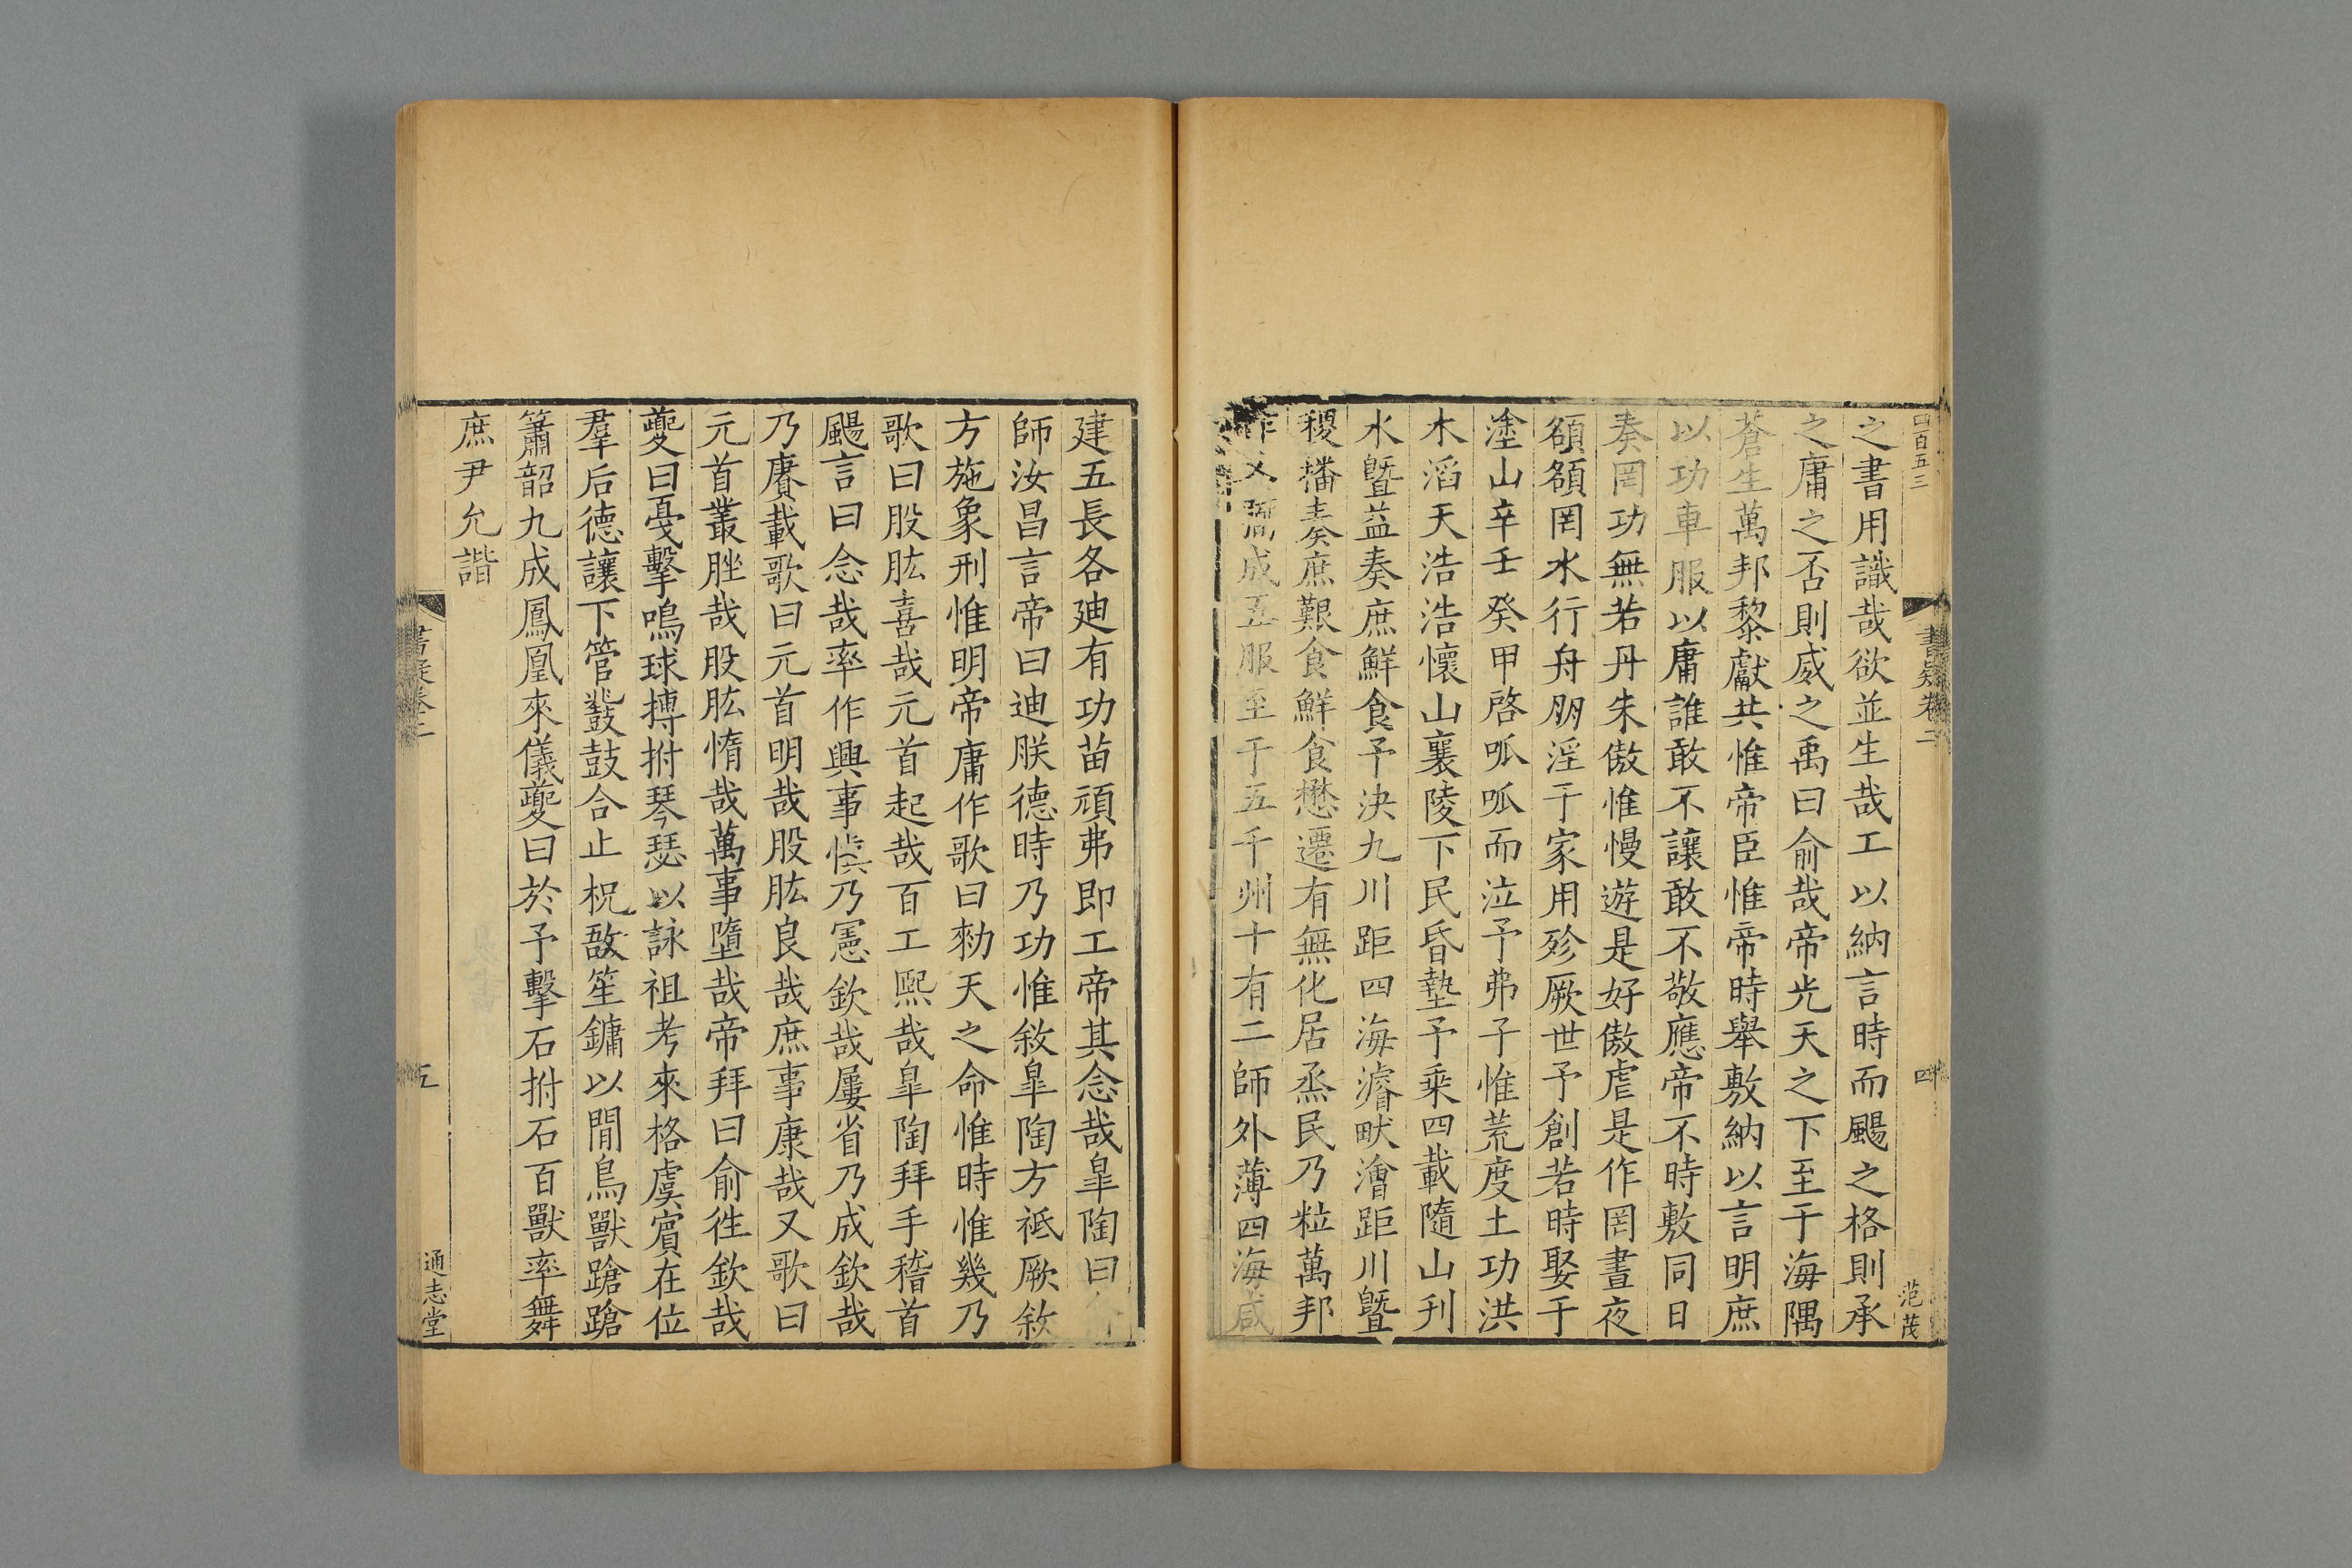 四百五三
之書用識哉欲並生哉工以納言時而颺之格則承
之庸之否則威之禹曰俞哉帝光天之下至于海隅
蒼生萬邦黎獻共惟帝臣惟帝時舉敷納以言明庶
以功車服以庸誰敢不讓敢不敬應帝不時敷同日
奏罔功無若丹朱傲惟慢遊是好傲虐是作罔晝夜
頟頟罔水行舟朋淫于家用殄厥世予創若時娶于
塗山辛壬癸甲啓呱呱而泣予弗子惟荒度土功洪
水滔天浩浩懷山襄陵下民昏墊予乘四載隨山刋
木曁益奏庶鮮食予決九川距四海濬畎澮距川曁
稷播奏庶艱食鮮食懋遷有無化居烝民乃粒萬邦
作乂弼成五服至于五千州十有二師外薄四海咸
書疑卷二
四
范茂
建五長各廸有功苗頑弗即工帝其念哉臯陶曰
師汝昌言帝曰迪朕德時乃功惟敘臯陶方祗厥敘
方施象刑惟明帝庸作歌曰勑天之命惟時惟幾乃
歌曰股肱喜哉元首起哉百工熙哉臯陶拜手稽首
颺言曰念哉率作興事愼乃憲欽哉屢省乃成欽哉
乃賡載歌曰元首明哉股肱良哉庶事康哉又歌曰
元首叢脞哉股肱惰哉萬事墮哉帝拜曰俞徃欽哉
夔曰戛擊鳴球搏拊琴瑟以詠祖考來格虞賓在位
羣后德讓下管鼗鼓合止柷敔笙鏞以閒鳥獸蹌蹌
簫韶九成鳳凰來儀夔曰於予擊石拊石百獸率舞
庶尹允諧
書疑卷二
五
通志堂